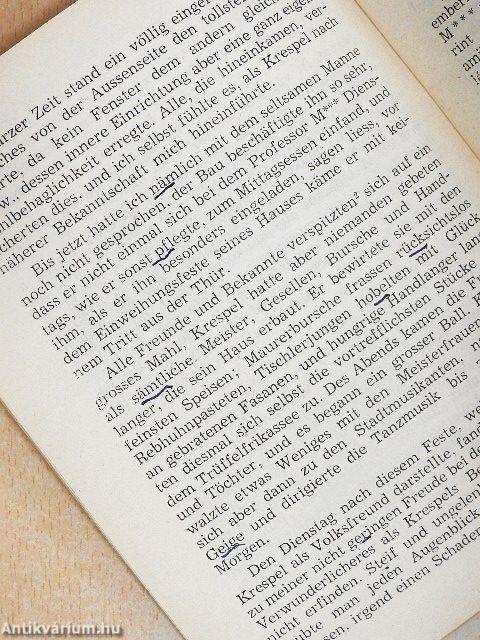 urzer Zeit stand ein völlig einger
ches von der Aussenseite den tollste
rte, da kein Fenster dem andern gleich
w., dessen innere Einrichtung aber eine ganz eigen
hlbehaglichkeit erregte. Alle, die hineinkamen, ver-
cherten dies, und ich selbst fühlte es, als Krespel nach
näherer Bekanntschaft mich hineinführte.
Bis jetzt hatte ich nämlich mit dem seltsamen Manne
noch nicht gesprochen, der Bau beschäftigte ihn so sehr,
dass er nicht einmal sich bei dem Professor M*** Diens-
tags, wie er sonst pflegte, zum Mittagsessen einfand, und
ihm, als er ihn besonders eingeladen, sagen liess, vor
dem Einweihungsfeste seines Hauses käme er mit kei-
nem Tritt aus der Thür.
Alle Freunde und Bekannte verspitzten² sich auf ein
grosses Mahl, Krespel hatte aber niemanden gebeten
als sämtliche Meister, Gesellen, Bursche und Hand-
langer, die sein Haus erbaut. Er bewirtete sie mit den
feinsten Speisen; Maurerbursche frassen rücksichtslos
Rebhuhnpasteten, Tischlerjungen hobelten mit Glück
an gebratenen Fasanen, und hungrige Handlanger lang
ten diesmal sich selbst die vortrefflichsten Stücke
dem Trüffelfrikassee zu. Des Abends kamen die F
und Töchter, und es begann ein grosser Ball. K
walzte etwas Weniges mit den Meisterfrauen
sich aber dann zu den Stadtmusikanten, n
Geige und dirigierte die Tanzmusik bis
Morgen.
Den Dienstag nach diesem Feste, we
Krespel als Volksfreund darstellte, fand
zu meiner nicht geringen Freude bei de
Verwunderlicheres als Krespels Be
nicht erfinden. Steif und ungelen
ubte man jeden Augenblick
irgend einen Schaden
ember
M***
rint
ami
Antikvárium.hu